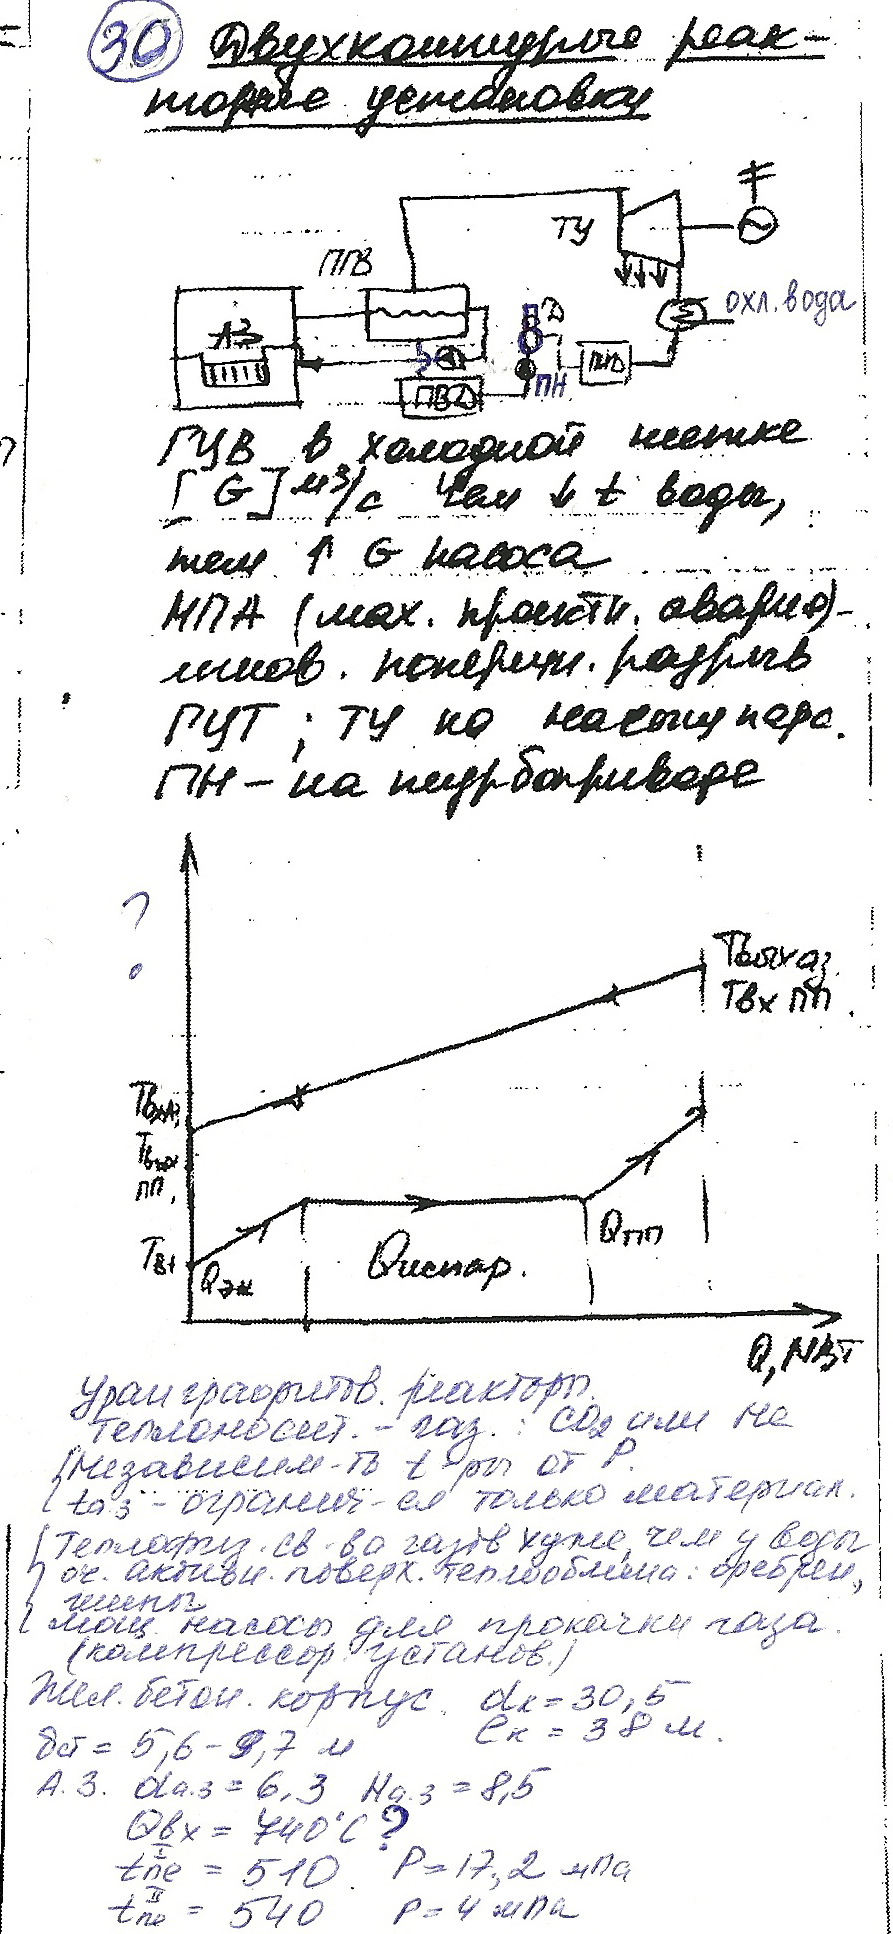 30 Двухконтурные реак-
торные установки
ТУ
ППВ
охл. вода
АЗ
ПД
ПНД
ПН
ПВД
ГЦВ в холодной нитке
[G] м³/с Чем ↓ t воды,
тем ↑ G насоса
МПА (мах. проектн. авария) -
мгнов. поперечн. разрыв
ГЦТ ; ТУ на насыщ паре.
ПН – на турбоприводе
?
Твых аз.
Твх ПП.
Твх АЗ,
Твых
ПП,
Твх
Qэк
Qиспар.
Qпп
Q, МВт
Уран графитов. реакторы.
Теплоносит. - газ. : CO₂ или He
Независим-ть t-ры от P.
tаз - огранич-ся только материал.
Теплофиз. св-ва газов хуже, чем у воды
оч. активн. поверх. теплообмена: оребрен,
шипы
мощ. насосы для прокачки газа.
(компрессор. установ.)
Жел. бетон. корпус. dк = 30,5
lк = 38 м.
δст = 5,6 - 9,7 м
А.З. dа.з = 6,3 Hа.з = 8,5
Qвх = 740°C ?
tпе I = 510. P = 17,2 мПа
tпе II = 540 P = 4 мПа